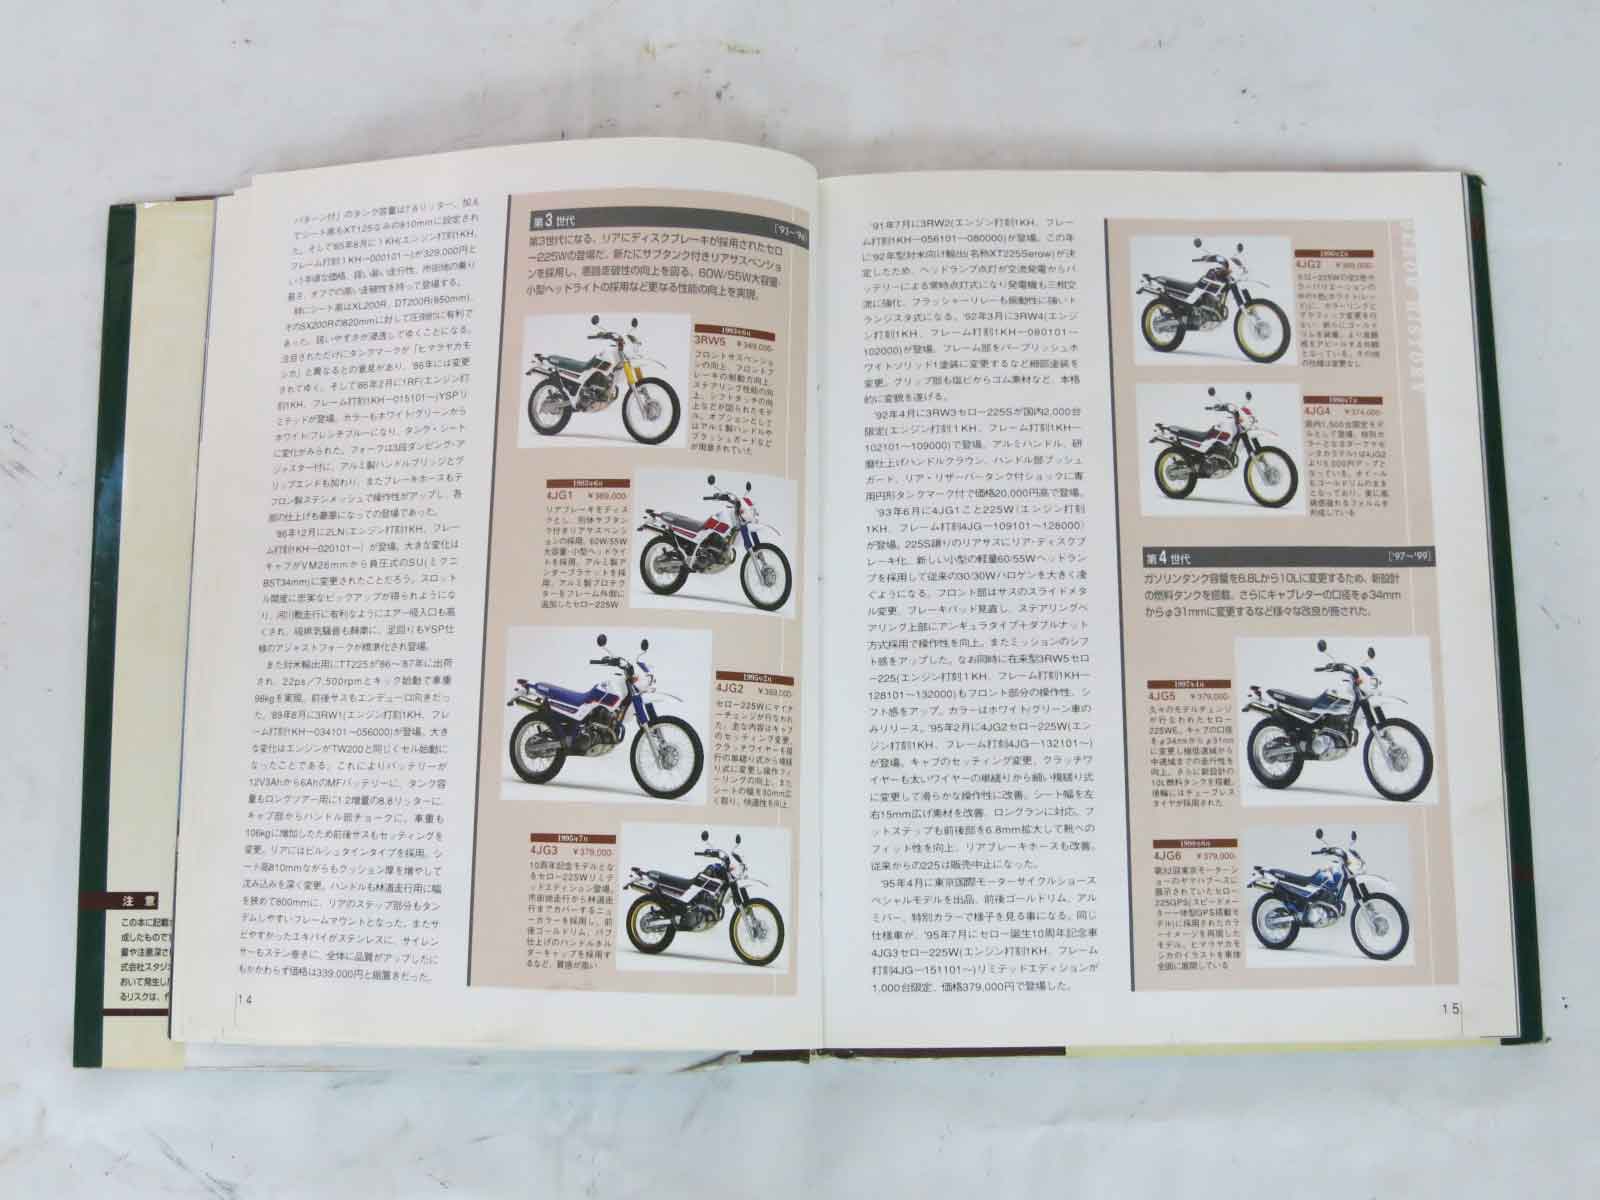 注 意
この本に記載
成したものです
量や注意深さ
式会社スタジオ
おいて発生し
るリスクは、
パターン付）のタンク容量は7.6リッター。加え
てシート高もXT125なみの810mmに設定され
た。そして'85年8月に1KH(エンジン打刻1KH、
フレーム打刻1KH－000101～)が329,000円と
いう手頃な価格、扱い易い走行性、市街地の乗り
易さ、オフでの高い走破性を持って登場する。
特にシート高はXL200R、DT200R(850mm)、
そのSX200Rの820mmに対して圧倒的に有利で
あった。扱いやすさが浸透してゆくことになる。
注目されただけにタンクマークが「ヒマラヤカモ
シカ」と異なるとの意見があり、'86年には変更
されてゆく。そして'86年2月に1RF(エンジン打
刻1KH、フレーム打刻1KH－015101～)YSPリ
ミテッドが登場。カラーもホワイト/グリーンから
ホワイト/フレンチブルーになり、タンク・シート
に変化がみられた。フォークは3段ダンピング・ア
ジャスター付に、アルミ製ハンドルブリッジとグ
リップエンドも加わり、またブレーキホースもテ
フロン製ステンメッシュで操作性がアップし、各
部の仕上げも豪華になっての登場であった。
'86年12月に2LN(エンジン打刻1KH、フレー
ム打刻1KH－020101～）が登場。大きな変化は
キャブがVM28mmから負圧式のSU(ミクニ
BST34mm)に変更されたことだろう。スロット
ル開度に忠実なピックアップが得られようにな
り、河川敷走行に有利なようにエアー吸入口も高
くされ、吸排気騒音も静粛に、足回りもYSP仕
様のアジャストフォークが標準化され登場。
また対米輸出用にTT225が'86～'87年に出荷
され、22ps/7,500rpmとキック始動で車重
98kgを実現。前後サスもエンデューロ向きだっ
た。'89年8月に3RW1(エンジン打刻1KH、フレ
ーム打刻1KH－034101～056000)が登場。大き
な変化はエンジンがTW200と同じくセル始動に
なったことである。これによりバッテリーが
12V3Ahから6AhのMFバッテリーに、タンク容
量もロングツアー用に1.2増量の8.8リッターに、
キャブ部からハンドル部チョークに。車重も
106kgに増加したため前後サスもセッティングを
変更。リアにはビルシュタインタイプを採用。シ
ート高810mmながらもクッション厚を増やして
沈み込みを深く変更。ハンドルも林道走行用に幅
を狭めて800mmに、リアのステップ部分もタン
デムしやすいフレームマウントとなった。またサ
ビやすかったエキパイがステンレスに、サイレン
サーもステン巻きに、全体に品質がアップしたに
もかかわらず価格は339,000円と据置きだった。
14
第3世代
['93～'96]
第3世代になる、リアにディスクブレーキが採用されたセロ
ー225Wの登場だ。新たにサブタンク付きリアサスペンショ
ンを採用し、悪路走破性の向上を図る。60W/55W大容量・
小型ヘッドライトの採用など更なる性能の向上を実現。
1993年6月
3RW5 ￥349,000-
フロントサスペンショ
ンの向上、フロントブ
レーキの制動力向上、
ステアリング性能の向
上、シフトタッチの向
上などが図られたモデ
ル。オプションとして
はアルミ製ハンドルや
ブラッシュガードなど
が用意されていた
1993年6月
4JG1 ￥369,000-
リアブレーキをディス
クとし、別体サブタン
ク付きリアサスペンシ
ョンの採用、60W/55W
大容量・小型ヘッドライ
トを採用。アルミ製ア
ンダーブラケットを採
用、アルミ製プロテク
ターをフレーム外側に
追加したセロー225W
1995年2月
4JG2 ￥369,000-
セロー225Wにマイナ
ーチェンジが行なわれ
た。主な内容はキャブ
のセッティング変更、
クラッチワイヤーを現
行の単縒り式から複縒
り式に変更し操作フィ
ーリングの向上、また
シートの幅を30mm広
く取り、快適性を向上
1995年7月
4JG3 ￥379,000-
10周年記念モデルとな
るセロー225Wリミテ
ッドエディション登場。
市街地走行から林道走
行までカバーするニュ
ーカラーを採用し、前
後ゴールドリム、バフ
仕上げのハンドルホル
ダーキャップを採用す
るなど、質感が高い
'91年7月に3RW2(エンジン打刻1KH、フレー
ム打刻1KH－056101～080000)が登場。この年
に'92年型対米向け輸出(名称XT225Serow)が決
定したため、ヘッドランプ点灯が交流発電からバ
ッテリーによる常時点灯式になり発電機も三相交
流に強化、フラッシャーリレーも振動性に強いト
ランジスタ式になる。'92年3月に3RW4(エンジ
ン打刻1KH、フレーム打刻1KH－080101～
102000)が登場。フレーム部をパープリッシュホ
ワイトソリッド1塗装に変更するなど細部塗装を
変更。グリップ部も塩ビからゴム素材など、本格
的に変貌を遂げる。
'92年4月に3RW3セロー225Sが国内2,000台
限定(エンジン打刻1KH、フレーム打刻1KH－
102101～109000)で登場。アルミハンドル、研
磨仕上げハンドルクラウン、ハンドル部ブッシュ
ガード、リア・リザーバータンク付ショックに専
用円形タンクマーク付で価格20,000円高で登場。
'93年6月に4JG1こと225W(エンジン打刻
1KH、フレーム打刻4JG－109101～128000)
が登場。225S譲りのリアサスにリア・ディスクブ
レーキ化、新しい小型の軽量60/55Wヘッドラン
プを採用して従来の30/30Wハロゲンを大きく凌
ぐようになる。フロント部はサスのスライドメタ
ル変更、ブレーキパッド見直し、ステアリングベ
アリング上部にアンギュラタイプ＋ダブルナット
方式採用で操作性を向上。またミッションのシフ
ト感をアップした。なお同時に在来型3RW5セロ
ー225(エンジン打刻1KH、フレーム打刻1KH－
128101～132000)もフロント部分の操作性、シ
フト感をアップ。カラーはホワイト/グリーン車の
みリリース。'95年2月に4JG2セロー225W(エン
ジン打刻1KH、フレーム打刻4JG－132101～)
が登場。キャブのセッティング変更、クラッチワ
イヤーも太いワイヤーの単縒りから細い複縒り式
に変更して滑らかな操作性に改善。シート幅を左
右15mm広げ素材を改善、ロングランに対応。フ
ットステップも前後部を6.8mm拡大して靴への
フィット性を向上、リアブレーキホースも改善。
従来からの225は販売中止になった。
'95年4月に東京国際モーターサイクルショース
ペシャルモデルを出品、前後ゴールドリム、アル
ミバー、特別カラーで様子を見る事になる。同じ
仕様車が、'95年7月にセロー誕生10周年記念車
4JG3セロー225W(エンジン打刻1KH、フレーム
打刻4JG－151101～)リミテッドエディションが
1,000台限定、価格379,000円で登場した。
SEROW HISTORY
1996年2月
4JG2 ￥369,000-
セロー225Wの全2色カ
ラーバリエーションの
中の1色(ホワイト/レッ
ド)に、カラーリングと
グラフィック変更を行
ない、新たにゴールド
リムを装着。より高級
感をアピールする外観
となっている。その他
の仕様は変更なし
1996年7月
4JG4 ￥374,000-
国内1,500台限定モデ
ルとして登場。特別カ
ラーとなるダークマゼ
ンタカラテル1は4JG2
より5,000円アップと
なっている。ホイール
もゴールドリムのまま
となっており、実に高
級感溢れるフォルムを
形成している
第4世代
['97～'99]
ガソリンタンク容量を8.8Lから10Lに変更するため、新設計
の燃料タンクを搭載。さらにキャブレターの口径をφ34mm
からφ31mmに変更するなど様々な改良が施された。
1997年4月
4JG5 ￥379,000-
久々のモデルチェンジ
が行なわれたセロー
225WE。キャブの口径
をφ34mmからφ31mm
に変更し極低速域から
中速域までの走行性を
向上。さらに新設計の
10L燃料タンクを搭載。
後輪にはチューブレス
タイヤが採用された
1998年8月
4JG6 ￥379,000-
第32回東京モーターシ
ョーのヤマハブースに
展示されていたセロー
225GPS(スピードメー
ター一体型GPS搭載モ
デル)に採用されたカラ
ーイメージを再現した
モデル。ヒマラヤカモ
シカのイラストを車体
全面に展開している
15